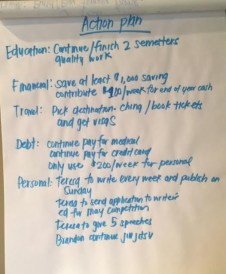 Action plan
Education: Continue/finish 2 semesters
quality work
Financial: save at least $1,000 saving
contribute $200/week for end of year cash
Travel: Pick destination - China / book tickets
and get visas
Debt: continue pay for medical
continue pay for credit card
only use $200/week for personal
Personal: Teresa to write every week and publish on
Sunday
Teresa to send application to
ed for May competition
Teresa to give 5 speeches
Brandon continue jiu jitsu